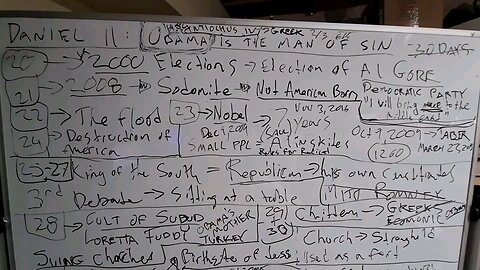 ANTIOCHUS IV → GREEK 2/3
DANIEL 11: OBAMA IS THE MAN OF SIN -30 DAYS
20 → 2000 Elections → Election of AL GORE
21 2008 → Sodomite → Not American Born
DEMOCRATIC PARTY
"I will bring to the
22 → The flood 23 → Nobel Nov 3, 2016
Dec 9, 2009 7 years
24 → Destruction of America
SMALL PPL = Alinskites
Rules for Radical
Oct 9 2009 →
1260 MARCH 23, 2013
25-27 King of the South = Republican → his own constituents
MITT ROMNEY
3rd Debate → Sitting at a table
28 → CULT OF SUBUD OBAMA'S MOTHER
LORETTA FUDDY TURKEY
29 30 Chittem → GREEK ECONOMIC
Church → Stronghold
Swing Churches Birthdate of Used as a Fort